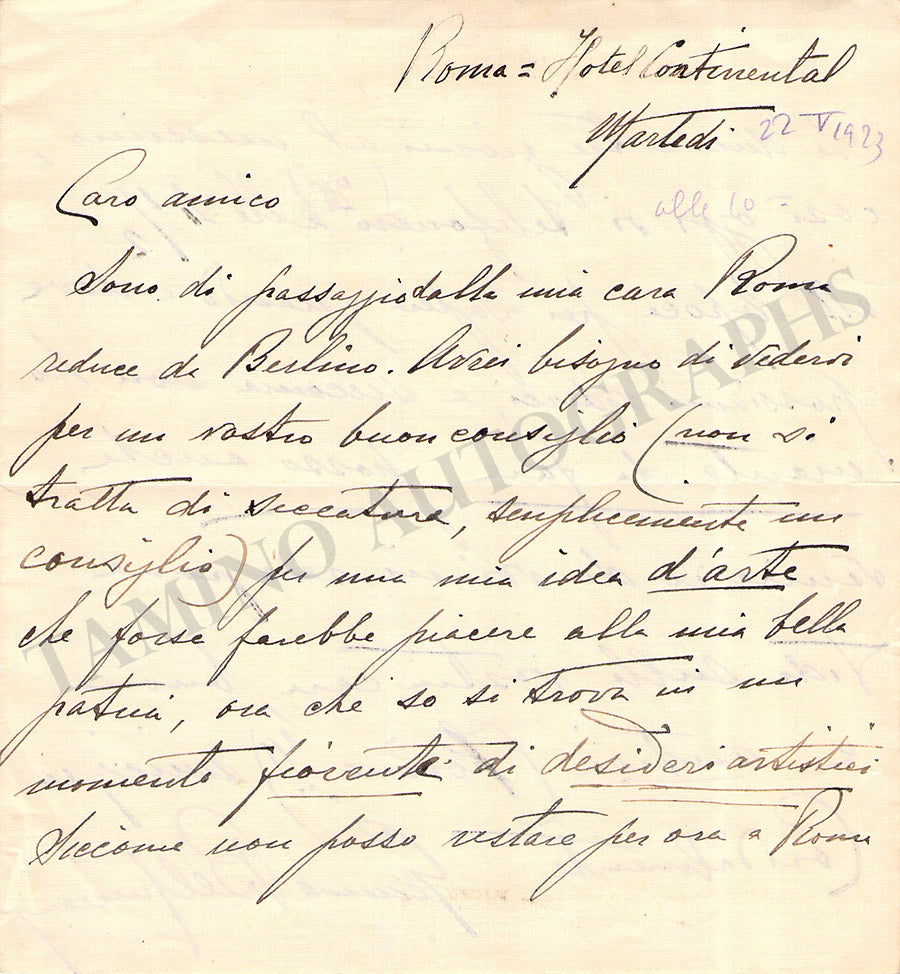 Roma = Hotel Continental
Martedi 22 V 1923
Caro amico
alle 10
Sono di passaggio dalla mia cara Roma
reduce da Berlino. Avrei bisogno di vedervi
per un vostro buon consiglio (non si
tratta di seccature, semplicemente un
consiglio) per una mia idea d'arte
che forse farebbe piacere alla mia bella
patria, ora che so si trova in un
momento fiorente di desideri artistici
Siccome non posso restare per ora a Roma
TAMINO AUTOGRAPHS